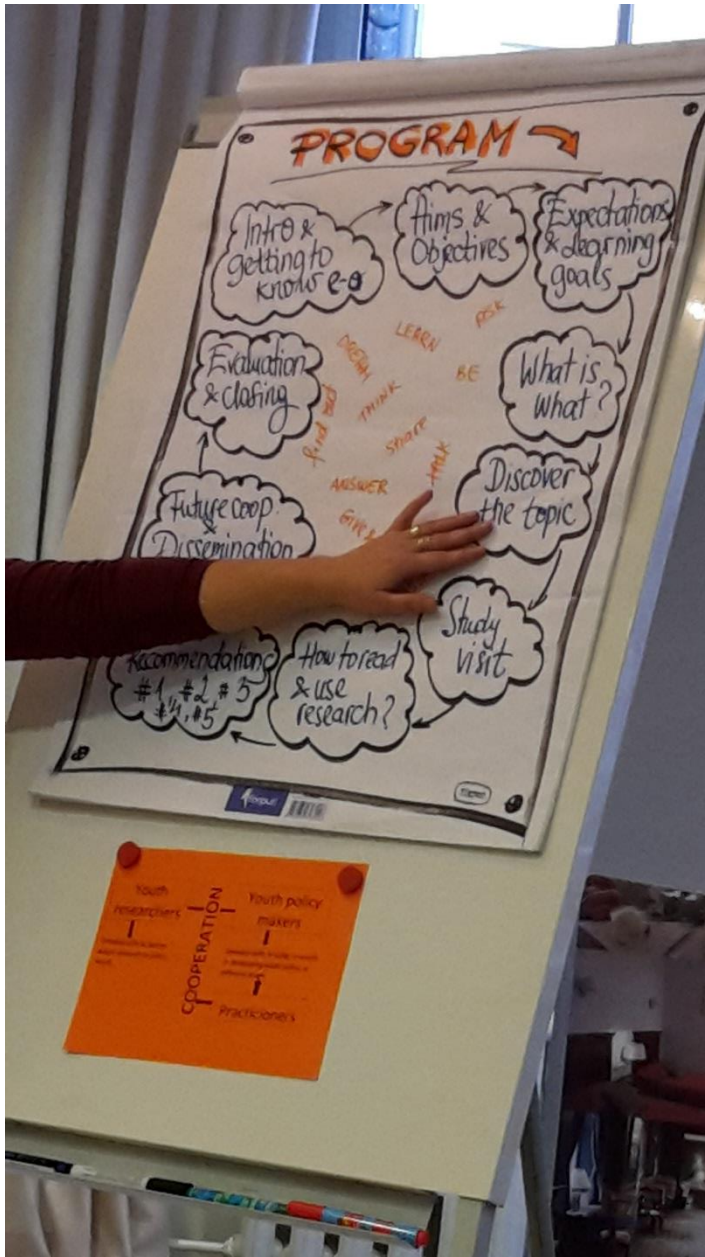 PROGRAM
Intro &
getting to
know e-o
Aims &
Objectives
Expectations
& Learning
goals
What is
What?
Discover
the topic
Study
visit
How to read
& use
research?
Recommendation
#1, #2 #3
#4, #5
Future coop.
&
Dissemination
Evaluation
& closing
ASK
LEARN
DREAM
BE
THINK
find out
share
talk
ANSWER
GIVE
Youth
researchers
COOPERATION
Youth policy
makers
Practicioners